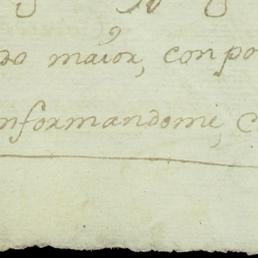 do maior, con po
nformandome, c